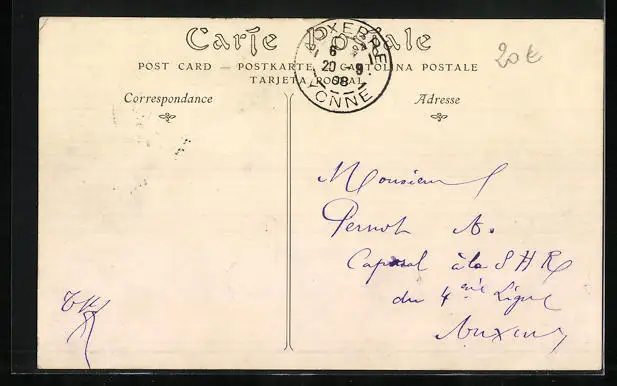 Carte Postale
POST CARD — POSTKARTE — CARTOLINA POSTALE
TARJETA POSTAL
AUXERRE
6
20 - 9
08
YONNE
20€
Correspondance
Adresse
Monsieur
Pernot A.
Caporal à la S H R
du 4ème Ligne
Auxerre